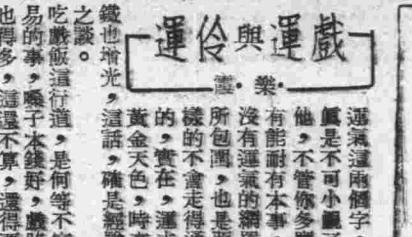 戲運與伶運
樂霞
運氣這兩個字，
真是不可小覷
他，不管你多
有能耐有本事，
沒有運氣的網
所包圍，也是
樣的不會走得
的，實在，運
黃金天色，時
鐵也增光，這話，確是經
之談。
吃戲飯這行道，是何等不
易的事，嗓子本錢好，戲
也得多，這還不算，還得